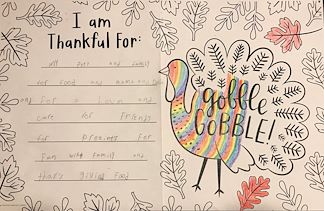 I am
Thankful For:
my pets and family
for food and mama and Dad
and For a Lovin and
care for Friends
for presents for
Fun with Family and
that's giving Food
gobble
GOBBLE!